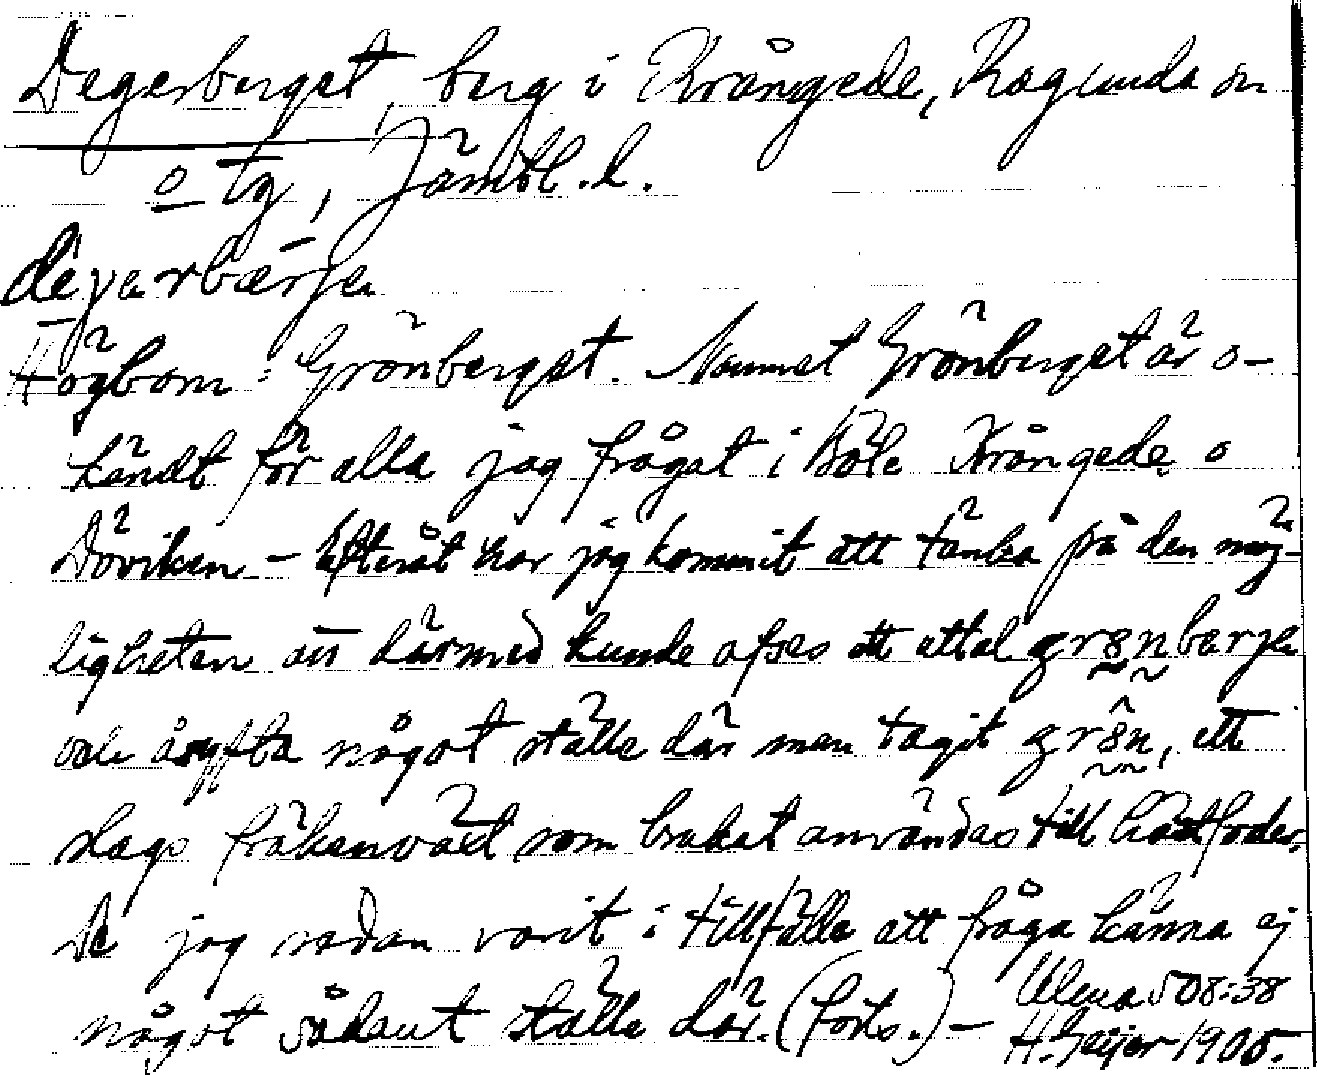 Degerberget, berg i Krångede, Ragunda sn
o tg, Jämtl. l.
Högbom: Grönberget. Namnet Grönberget är o-
kändt för alla jag frågat i Böle Krångede o
Döviken – Efteråt har jag kommit att tänka på den möj-
ligheten att därmed kunde afses ett uttal
och åsyfta något ställe där man tagit grön, ett
slags fräkenväxt som brukat användas till hästfoder.
De jag sedan varit i tillfälle att fråga känna ej
något sådant ställe där. (forts.) –
Ulma 508:38
H. Geijer 1905.